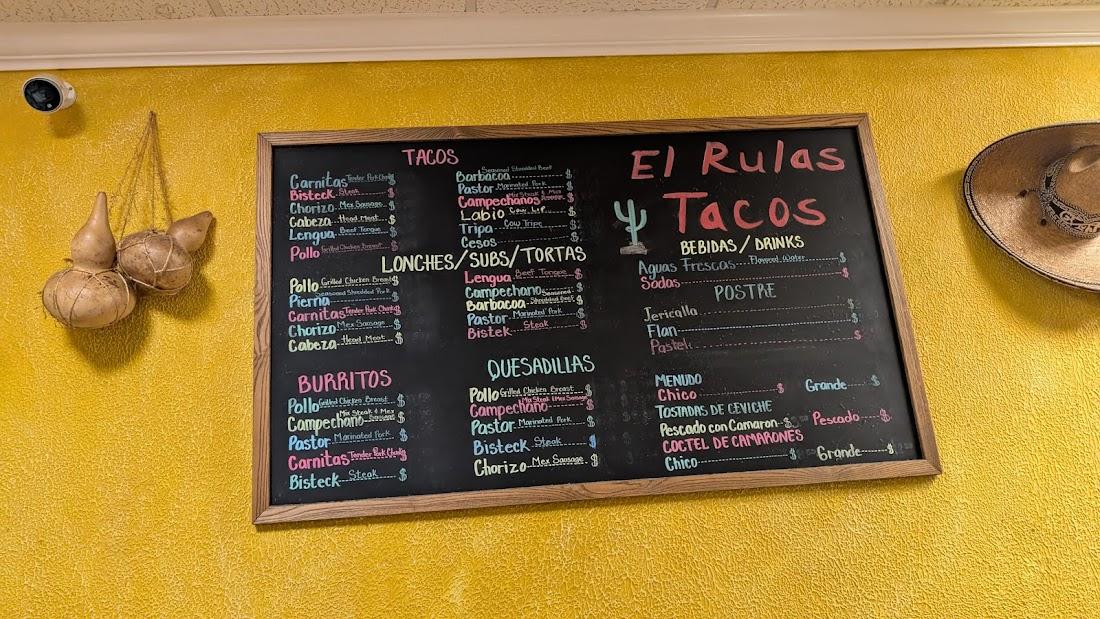 El Rulas
Tacos
TACOS
Carnitas Tender Pork Chunks $
Bisteck Steak $
Chorizo Mex Sausage $
Cabeza Head Meat $
Lengua Beef Tongue $
Pollo Grilled Chicken Breast $
Barbacoa Seasoned Shredded Beef $
Pastor Marinated Pork $
Campechanos Mix Steak & Mex Sausage $
Labio Cow Lip $
Tripa Cow Tripe $
Cesos $
LONCHES/SUBS/TORTAS
Pollo Grilled Chicken Breast $
Pierna Seasoned Shredded Pork $
Carnitas Tender Pork Chunks $
Chorizo Mex Sausage $
Cabeza Head Meat $
Lengua Beef Tongue $
Campechano $
Barbacoa Seasoned Shredded Beef $
Pastor Marinated Pork $
Bistek Steak $
BURRITOS
Pollo Grilled Chicken Breast $
Campechano Mix Steak & Mex Sausage $
Pastor Marinated Pork $
Carnitas Tender Pork Chunks $
Bisteck Steak $
QUESADILLAS
Pollo Grilled Chicken Breast $
Campechano Mix Steak & Mex Sausage $
Pastor Marinated Pork $
Bisteck Steak $
Chorizo Mex Sausage $
BEBIDAS/DRINKS
Aguas Frescas Flavored Water $
Sodas $
POSTRE
Jericalla $
Flan $
Pastel $
MENUDO
Chico $ Grande $
TOSTADAS DE CEVICHE
Pescado con Camaron $ Pescado $
COCTEL DE CAMARONES
Chico $ Grande $